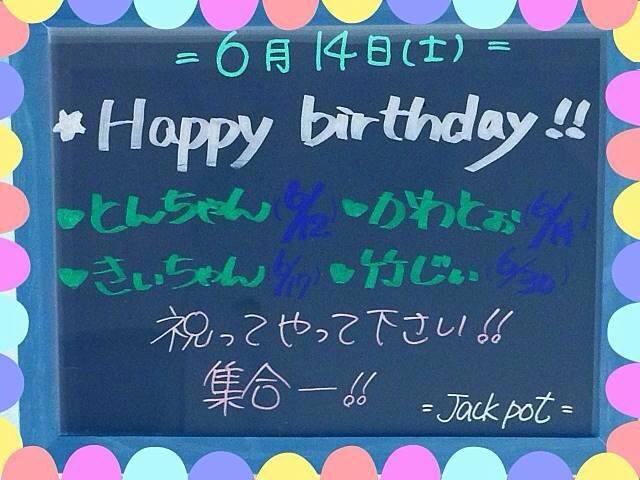 = 6月14日(土) =
☆Happy birthday!!
♥とんちゃん(6/12) ♥かわとぉ(6/14)
♥きぃちゃん(6/17) ♥竹じぃ(6/30)
祝ってやって下さい!!
集合ー!!
= Jack pot =